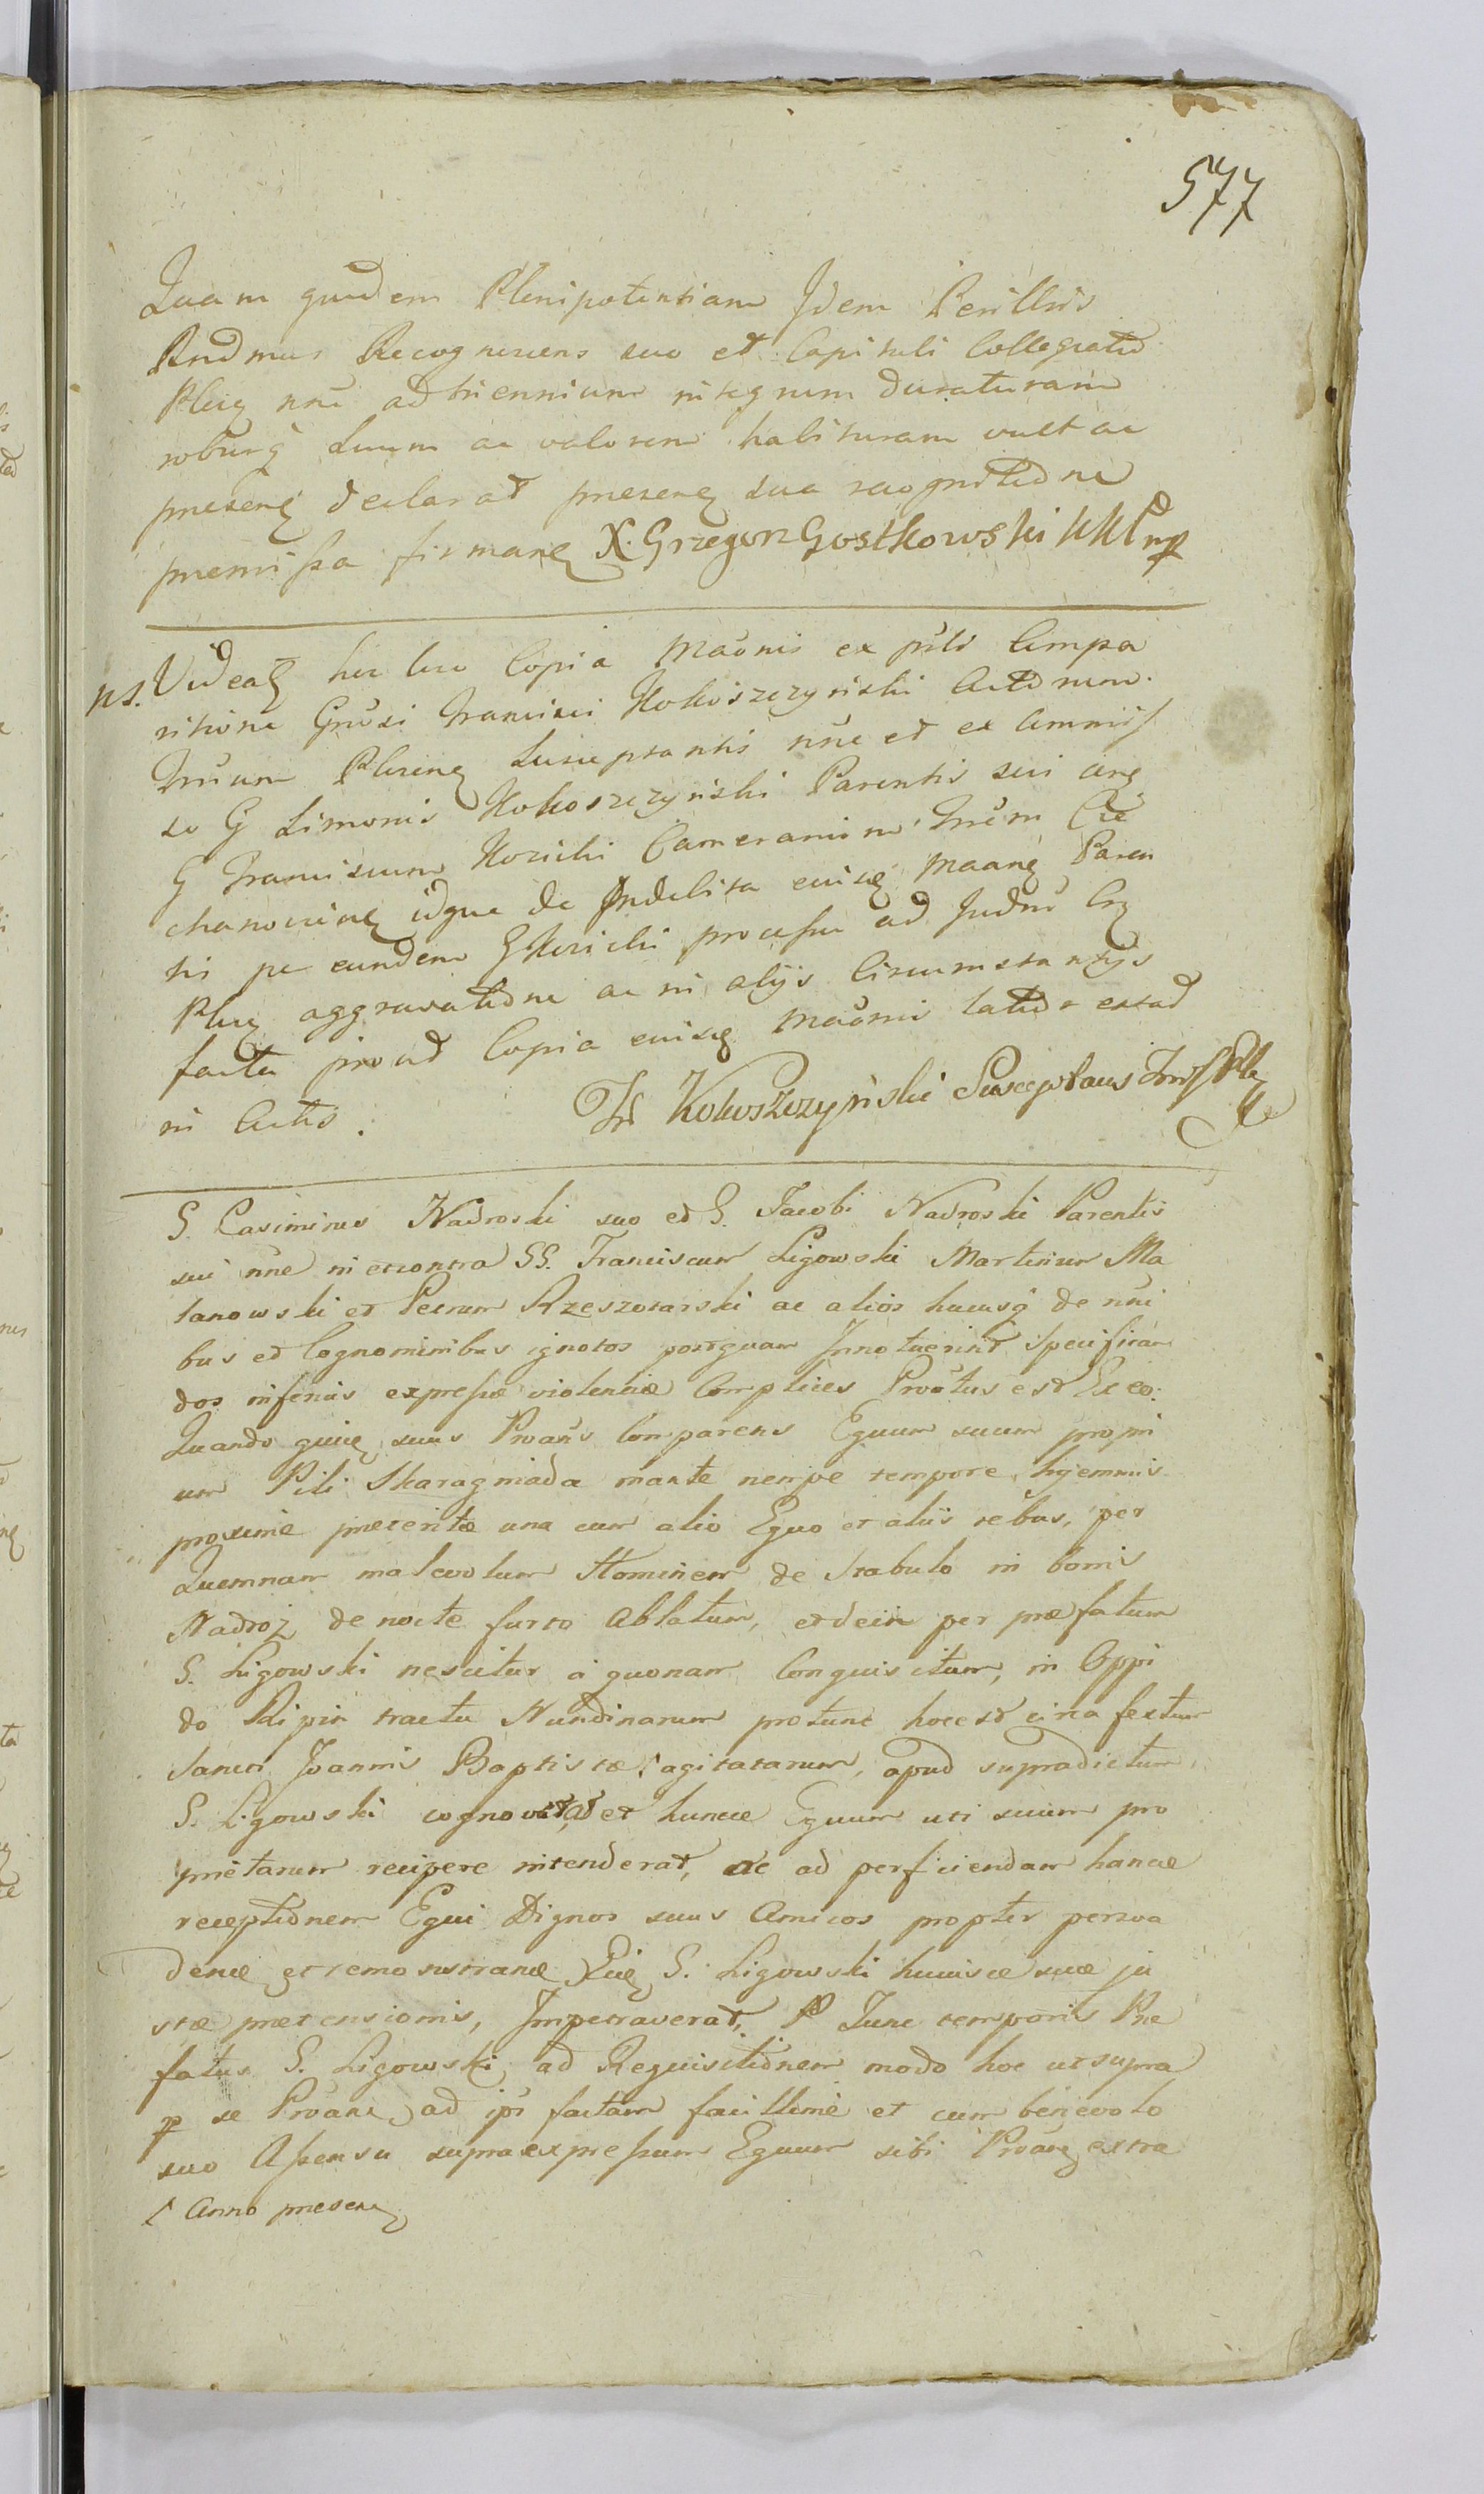 577
Quam quidem Plenipotentiam Idem Perillris
Rndmus Recognoscens suo et Capituli Collegiatæ
Plcę nne ad triennium integrum duraturam
roburq suum ac valorem habituram vult ac
presenę declarat presenę sua recognitione
premissa firmanę X. Grzegorz Gostkowski KKP mp
ns. Videatę hic loco Copia Maonis ex psti Compa
ritione Gnosi Francisci Kokoszczynski Actorum
Trrium Plcenę Susceptantis nne et ex Commiss
so G Simonis Kokoszczynski Parentis sui ane
G Franciscum Kozicki Camerarium Trrem Cie
chanovienę idque de Indebita euiscę Maanę Paren
tis pe eundem G Kozicki processu ad Judm Crę
Plcę aggravatione ac in alijs Circumstantijs
facta prout Copia euiscę Maonis latior extat
in Actis.
Fr Kokoszczyński Susceptans Trrs Plc
G. Casimirus Nadroski suo et G. Jacobi Nadroski Parentis
sui nne in et contra GG. Franciscum Ligowski Martinum Ma
lanowski et Petrum Rzeszotarski ac alios hucusq de nni
bus et Cognominibus ignotos postquam Innotuerint specifican
dos inferius expressæ violentiæ Complices Protus est Ex eo:
Quando quicę suus Proans Comparens Equum suum propri
um Pili Skarogniada mante nempe tempore hyemmis
proxime preteritæ una cum alio Equo et aliis rebus, per
Quemnam malevolum Hominem de stabulo in bonis
Nadroż de nocte furto Ablatum, et dein per præfatum
G. Ligowski nescitur à quonam Conquisitum, in Oppi
do Ripin tractu Nundinarum protunc hocest circa festum
Sancti Joannis Baptistæ / agitatarum, apud supradictum
G. Ligowski cognoverat et huncce Equum uti suum pro
prietarium recipere intenderat, ac ad perficiendam hancce
receptionem Equi Dignos suus Amicos propter persva
denæ et remonstranæ Eidę G. Ligowski huiusce suæ ju
stæ prætensionis, Impetraverat, Tunc temporis Præ
fatus G. Ligowski ad Requisitionem modo hoc ut supra
p se Proane ad ipi factam facillimè et cum benevolo
suo Assensu supraexpressum Equum sibi Proanę extra
/ Anno presenę